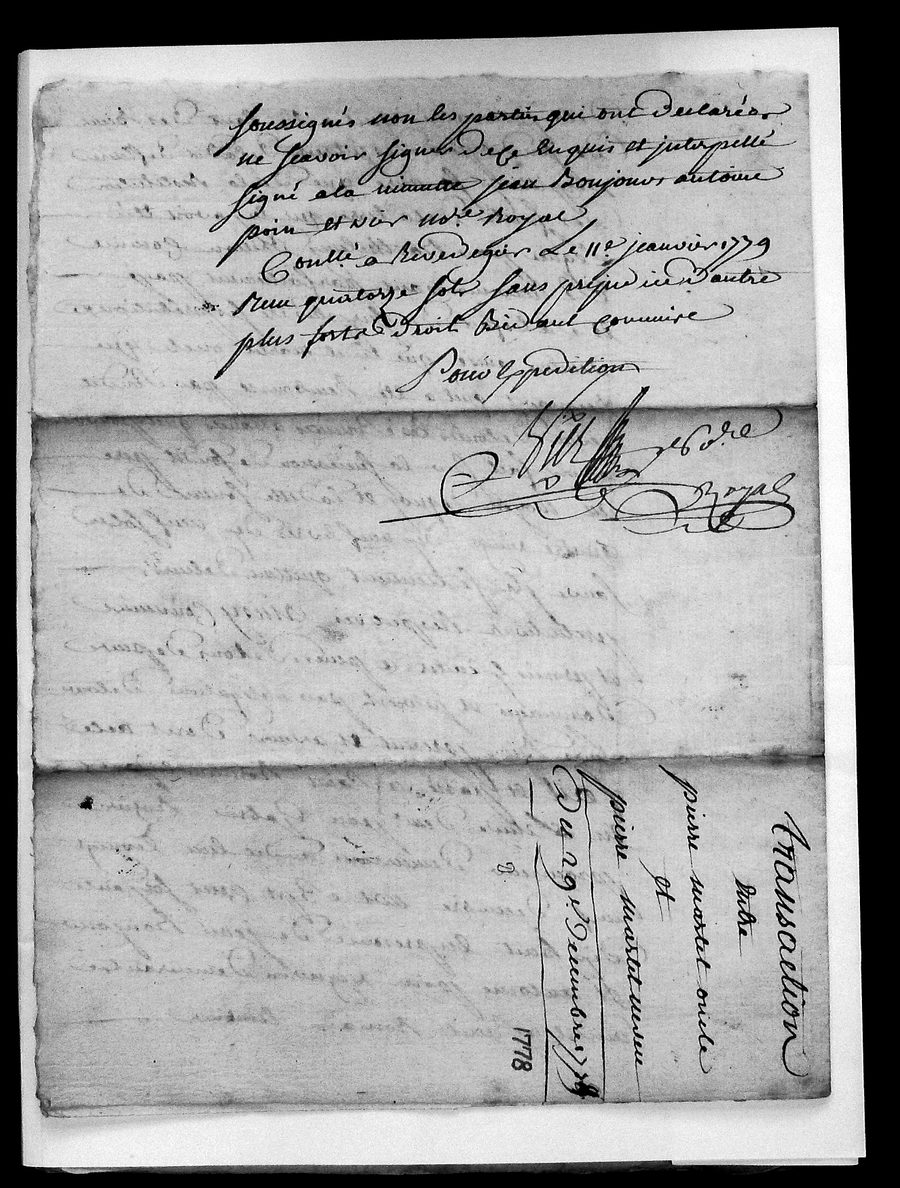 soussignés non les parties qui ont declarées
ne scavoir signer de ce Enquis et jnterpellé
signé a la minutte jean Boujour antoine
poin et Viés no.re Royal
Con.llé a Rivedegier Le 11.e jeanvier 1779
Reçu quatorze sols sans prejudice D'autre
plus forts Droit
Pour Expedition
no.re
Royal
transaction
Entre
pierre martel oncle
et
pierre martel neveu
Du 29.e Decembre 1778
1778